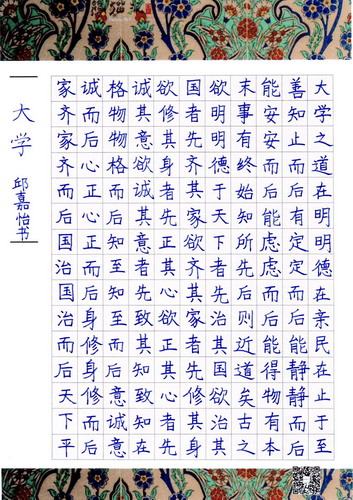 大学之道在明明德在亲民在止于至
善知止而后有定定而后能静静而后
能安安而后能虑虑而后能得物有本
末事有终始知所先后则近道矣古之
欲明明德于天下者先治其国欲治其
国者先齐其家欲齐其家者先修其身
欲修其身者先正其心欲正其心者先
诚其意欲诚其意者先致其知致知在
格物物格而后知至知至而后意诚意
诚而后心正心正而后身修身修而后
家齐家齐而后国治国治而后天下平
大学 邱嘉怡书